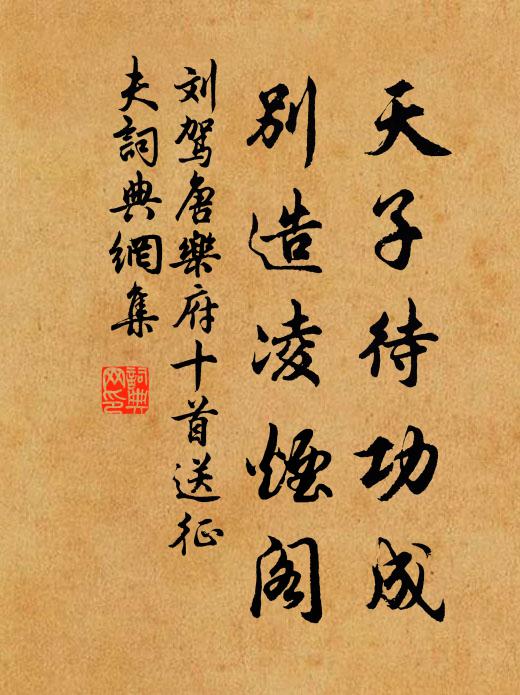 天子待功成
别造凌煙阁
刘驾唐樂府十首送征
夫詞典網集
詞典网印